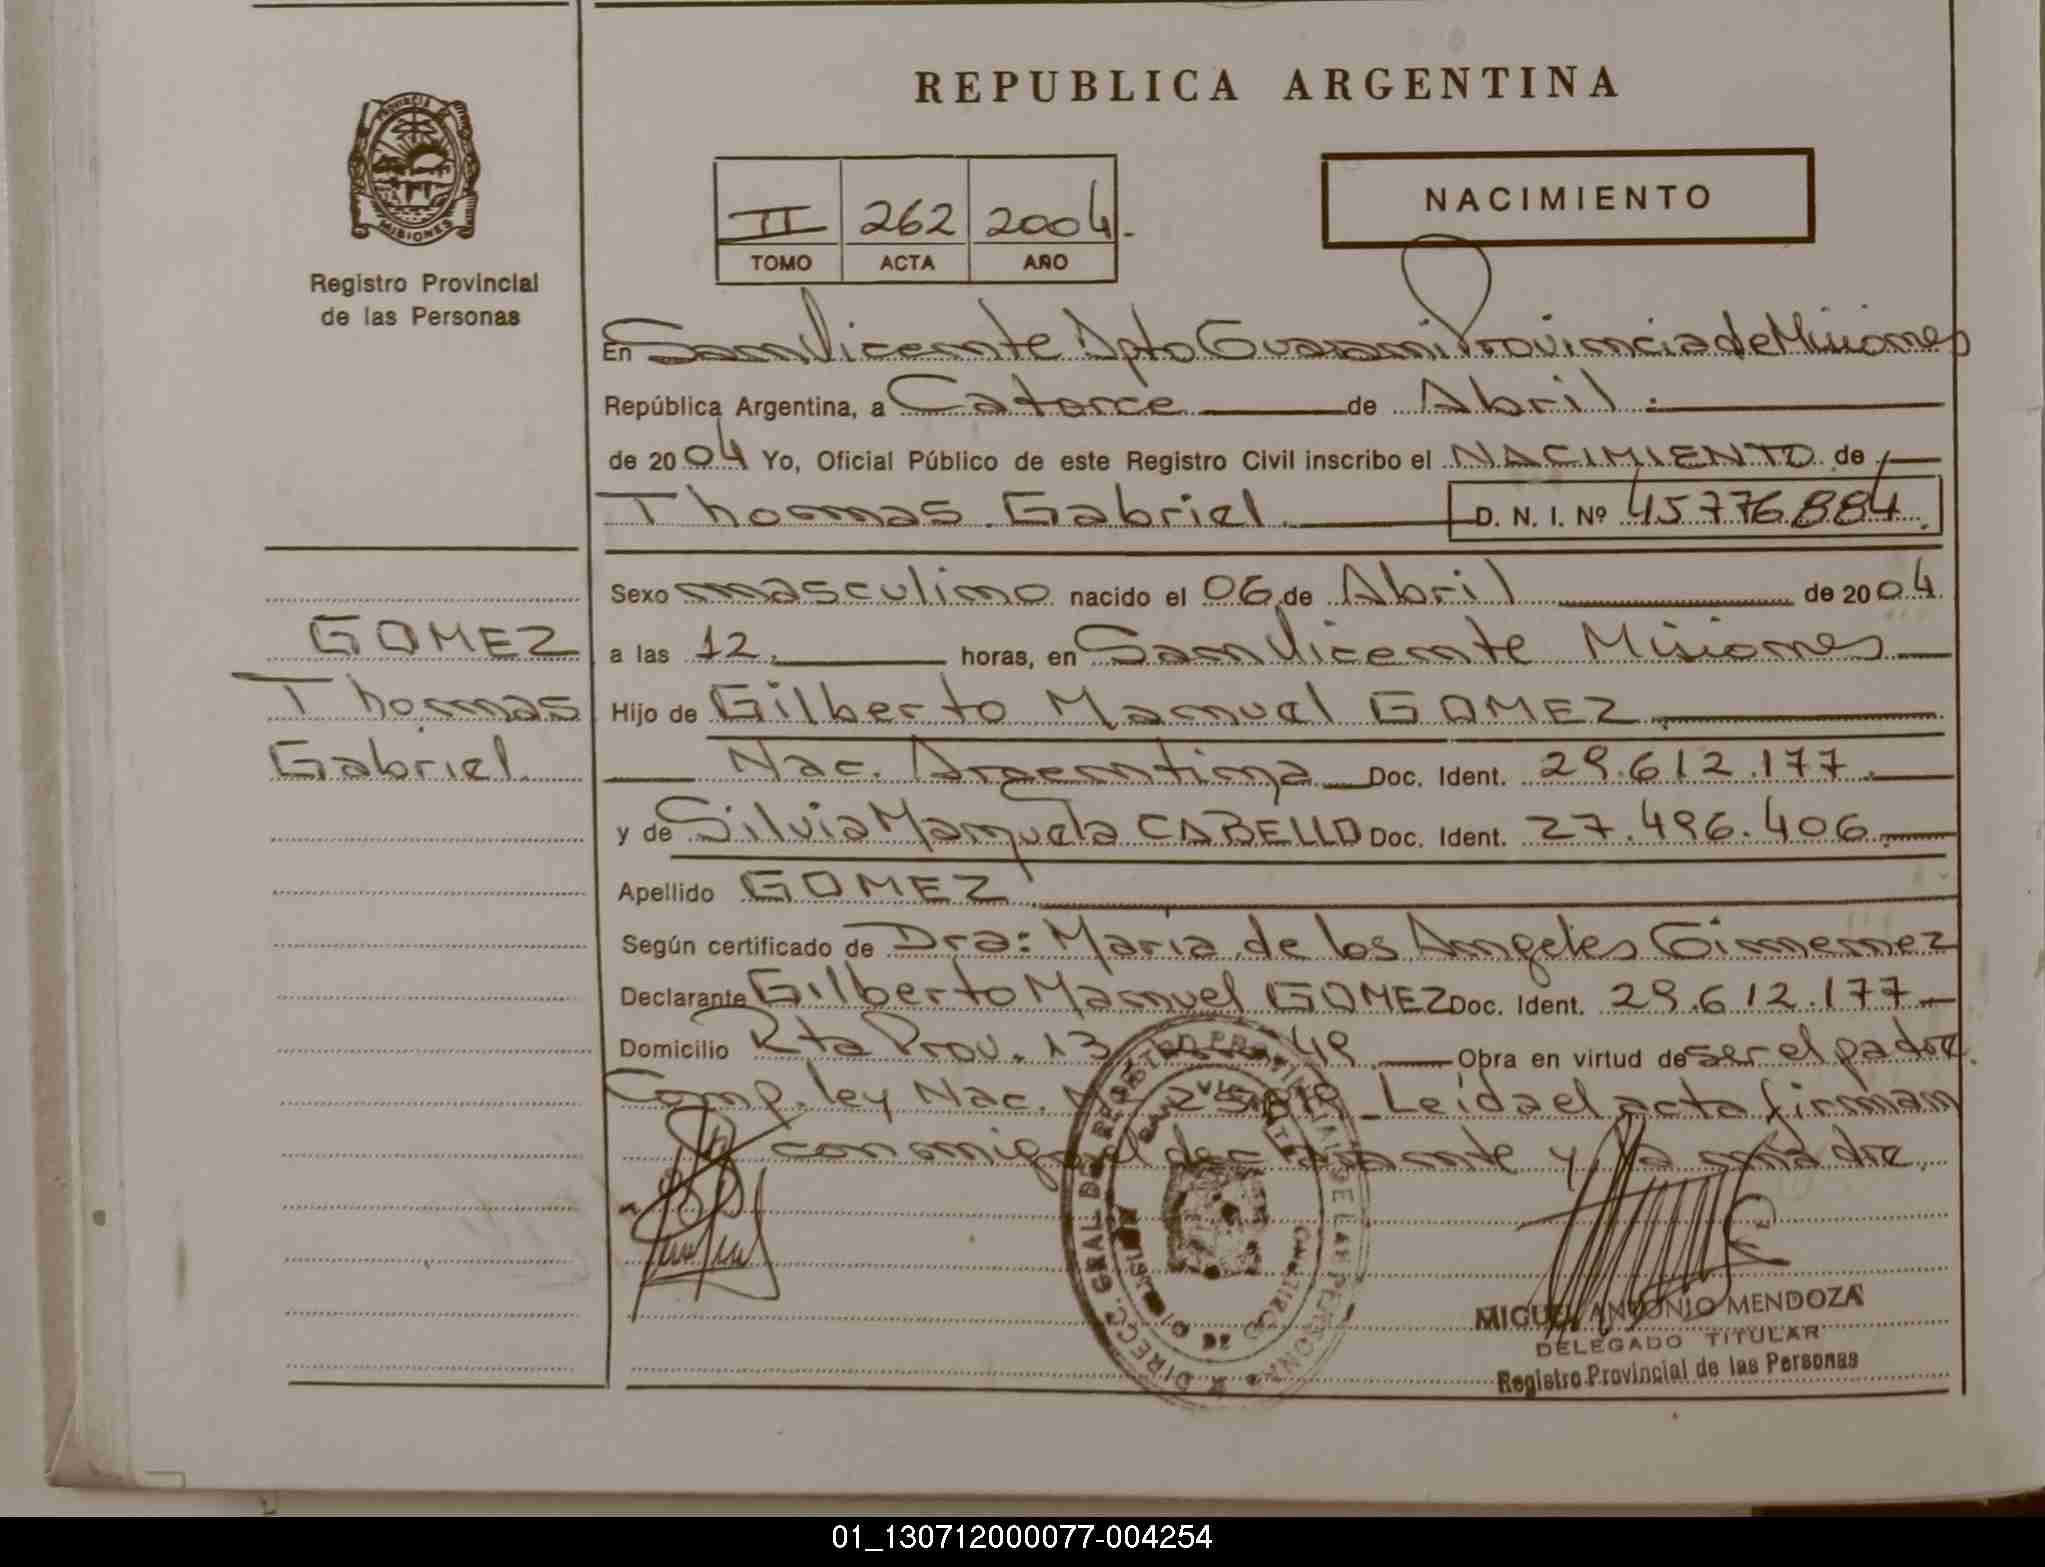 REPUBLICA ARGENTINA
PROVINCIA DE MISIONES
Registro Provincial
de las Personas
II 262 2004.
TOMO ACTA AÑO
NACIMIENTO
En San Vicente Dpto Guarani Provincia de Misiones
República Argentina, a Catorce de Abril.
de 2004 Yo, Oficial Público de este Registro Civil inscribo el NACIMIENTO de
Thomas Gabriel D. N. I. Nº 45.776.884.
GOMEZ
Thomas
Gabriel
Sexo masculino nacido el 06 de Abril de 2004
a las 12. horas, en San Vicente Misiones
Hijo de Gilberto Manuel GOMEZ
Nac. Argentina Doc. Ident. 29.612.177.
y de Silvia Manuela CABELLO Doc. Ident. 27.496.406
Apellido GOMEZ
Según certificado de Dra: Maria de los Angeles Gimenez
Declarante Gilberto Manuel GOMEZ Doc. Ident. 29.612.177
Domicilio Rta Prov. 13 49 Obra en virtud de ser el padre.
Comp. ley Nac. Leida el acta firman
conmigo el declarante y la madre.
DIRECC. GRAL. DE REGISTRO PROVINCIAL DE LAS PERSONAS
SAN VICENTE
MIGUEL ANTONIO MENDOZA
DELEGADO TITULAR
Registro Provincial de las Personas
01_130712000077-004254